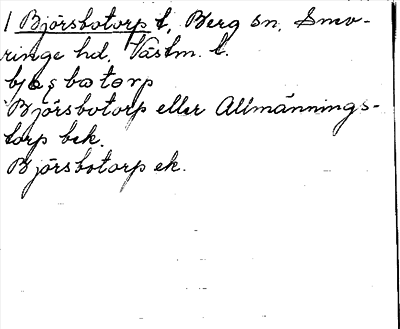 1 Björsbotorp t, Berg sn, Snev-
ringe hd, Västm. l.
bjəʂbətərp
Björsbotorp eller Allmännings-
torp bek.
Björsbotorp ek.